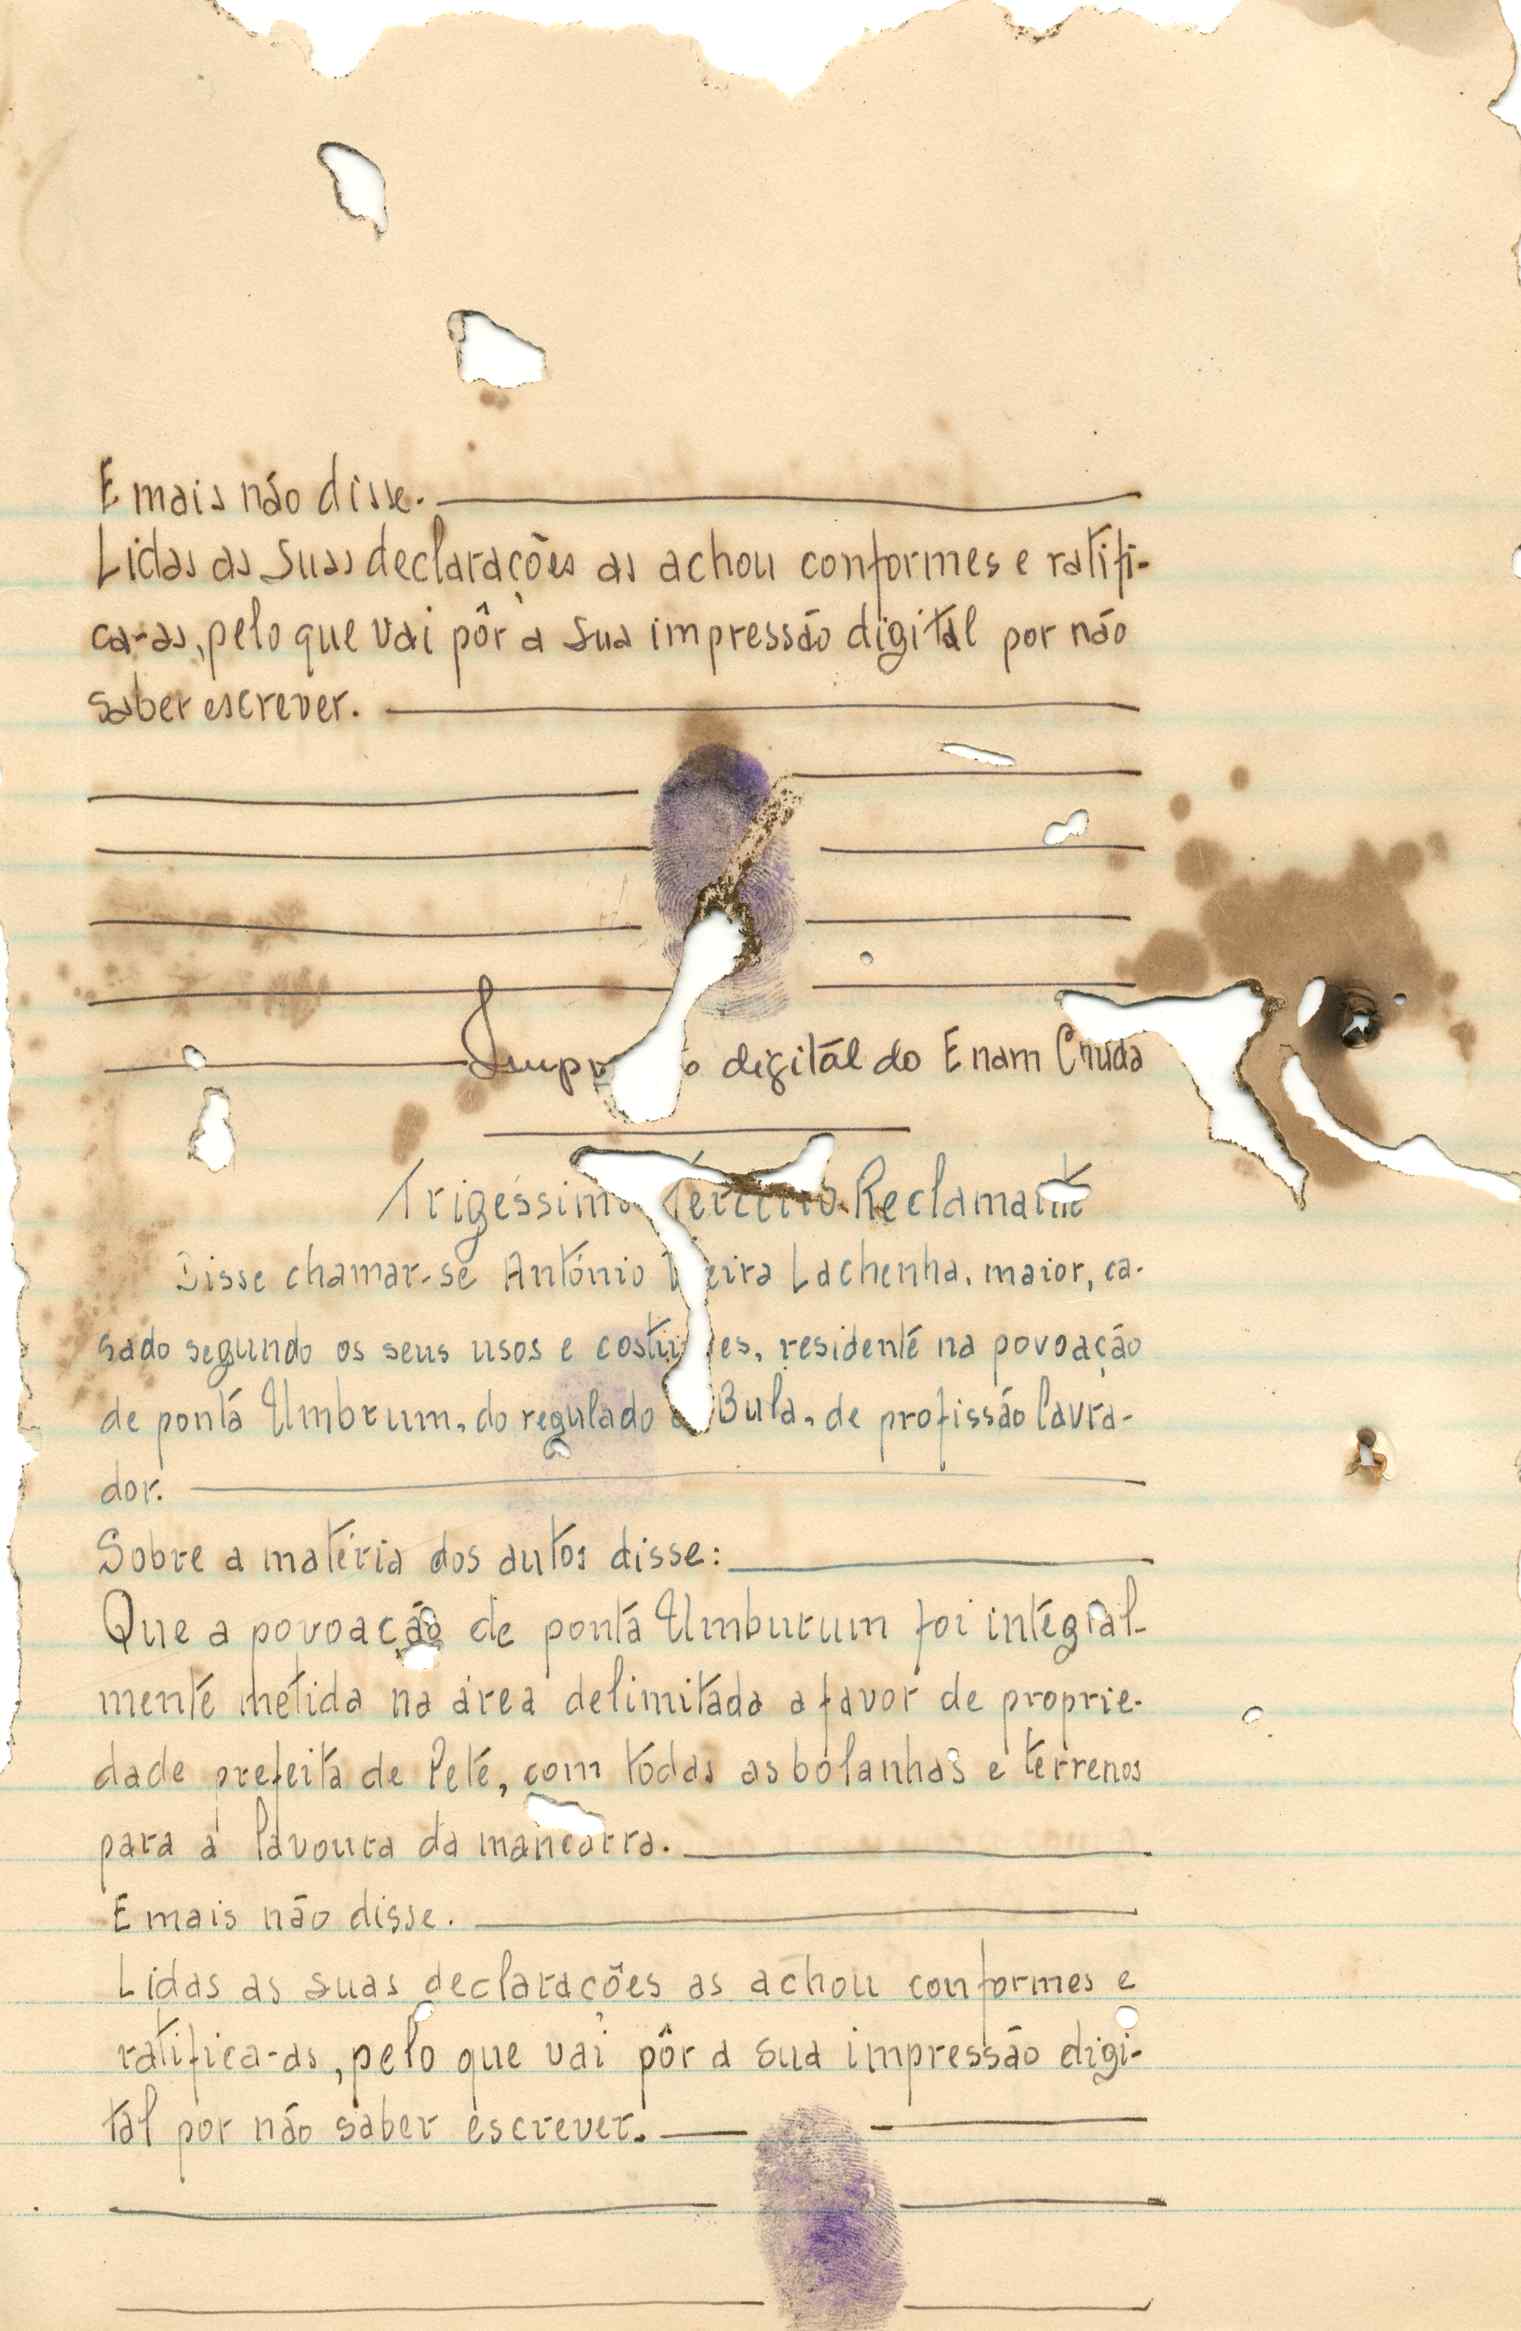 E mais não disse.
Lidas as suas declarações as achou conformes e ratifi-
ca-as, pelo que vai pôr a sua impressão digitál por não
saber escrever.
digitál do Enam Cnuda
Trigéssimo Terceiro Reclamante
Disse chamar-se António Lachenha, maior, ca-
sado segundo os seus usos e costumes, residenté na povoação
de pontá Umbrum, do regulado Bula, de profissão lavra-
dor.
Sobre a matéria dos autos disse:
Que a povoação de pontá Umburum foi intégral-
menté metida na área delimitáda a favor de proprie-
dade prefeita de Peté, com todas as bolanhas e terrenos
para a lavoura da mancarra.
E mais não disse.
Lidas as suas declarações as achou conformes e
ratifica-as, pelo que vai pôr a sua impressão digi-
tál por não saber escrever.